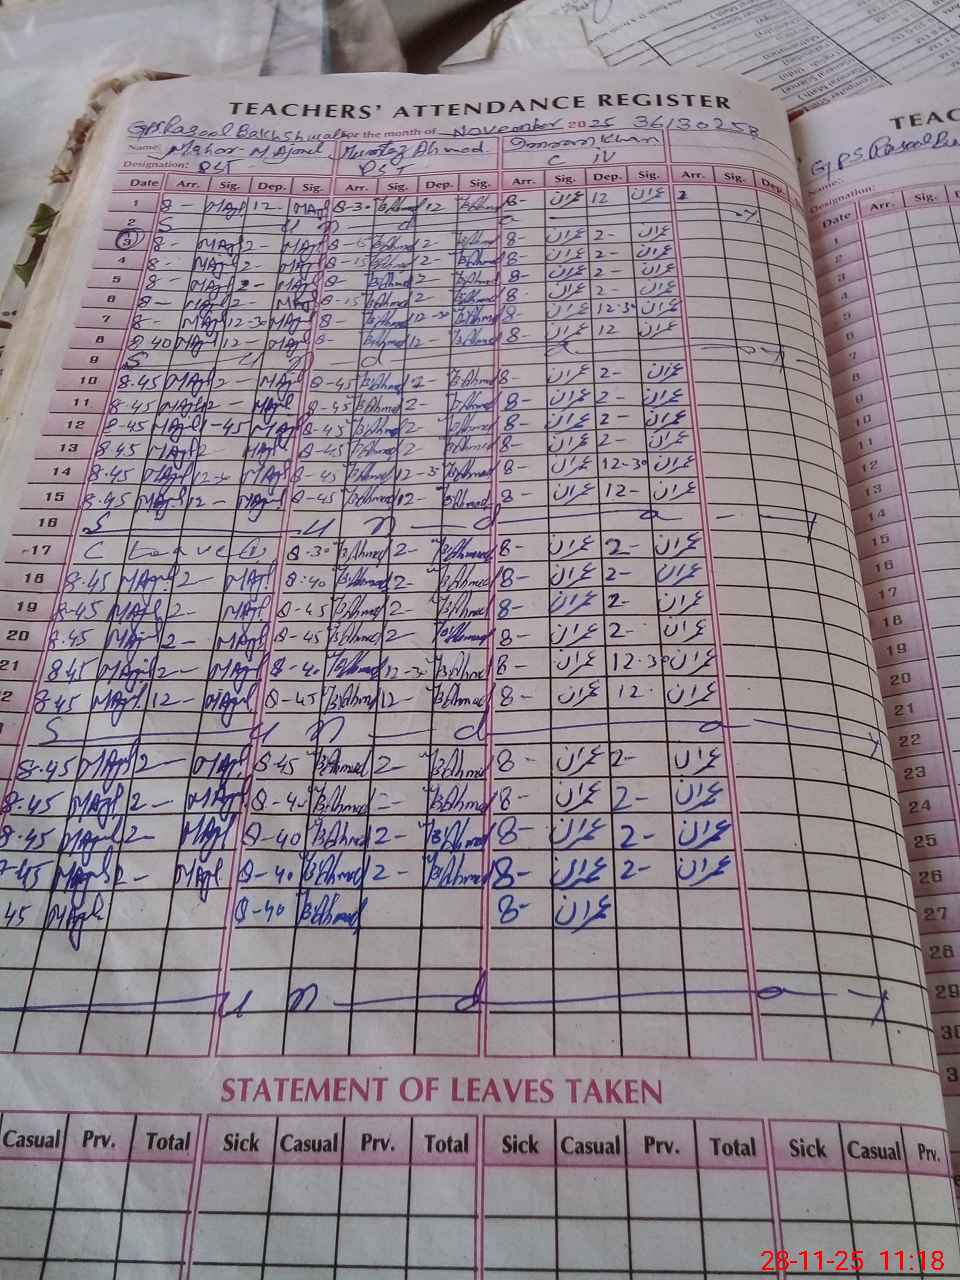 TEACHERS' ATTENDANCE REGISTER
For the month of November 2025 36130258
Name: Mehar M Ajmal Mumtaz Ahmed Imran Khan
Designation: PST PST C IV
Date Arr. Sig. Dep. Sig. Arr. Sig. Dep. Sig. Arr. Sig. Dep. Sig. Arr. Sig. Dep.
1 8- MAjl 12- MAjl 8-30 BAhmed 12 BAhmed 8- عمران 12 عمران
2 Sunday
3 8- MAjl 2- MAjl 8-15 BAhmed 2- BAhmed 8- عمران 2- عمران
4 8- MAjl 2- MAjl 8-15 BAhmed 2- BAhmed 8- عمران 2- عمران
5 8- MAjl 2- MAjl 8- BAhmed 2- BAhmed 8- عمران 2- عمران
6 8- MAjl 2- MAjl 8-15 BAhmed 2- BAhmed 8- عمران 2- عمران
7 8- MAjl 12-30 MAjl 8- BAhmed 12-30 BAhmed 8- عمران 12-30 عمران
8 8-40 MAjl 12- MAjl 8- BAhmed 12- BAhmed 8- عمران 12 عمران
9 Sunday
10 8.45 MAjl 2- MAjl 8-45 BAhmed 2- BAhmed 8- عمران 2- عمران
11 8.45 MAjl 2- MAjl 8-45 BAhmed 2- BAhmed 8- عمران 2- عمران
12 8-45 MAjl 1-45 MAjl 8-45 BAhmed 2- BAhmed 8- عمران 2- عمران
13 8.45 MAjl 2 MAjl 8-45 BAhmed 2 BAhmed 8- عمران 2- عمران
14 8.45 MAjl 12-30 MAjl 8-45 BAhmed 12-30 BAhmed 8- عمران 12-30 عمران
15 8.45 MAjl 12- MAjl 8-45 BAhmed 12- BAhmed 8- عمران 12- عمران
16 Sunday
17 C Leave (1) 8-30 BAhmed 2- BAhmed 8- عمران 2- عمران
18 8.45 MAjl 2- MAjl 8.40 BAhmed 2- BAhmed 8- عمران 2- عمران
19 8-45 MAjl 2- MAjl 8-45 BAhmed 2- BAhmed 8- عمران 2- عمران
20 8.45 MAjl 2- MAjl 8-45 BAhmed 2- BAhmed 8- عمران 2- عمران
21 8.45 MAjl 2- MAjl 8-40 BAhmed 12-30 BAhmed 8- عمران 12.30 عمران
2 8.45 MAjl 12- MAjl 8-45 BAhmed 12- BAhmed 8- عمران 12. عمران
Sunday
8.45 MAjl 2- MAjl 8-45 BAhmed 2- BAhmed 8- عمران 2- عمران
8.45 MAjl 2- MAjl 8-40 BAhmed 2- BAhmed 8- عمران 2- عمران
8.45 MAjl 2- MAjl 8-40 BAhmed 2- BAhmed 8- عمران 2- عمران
8-45 MAjl 2- MAjl 8-40 BAhmed 2- BAhmed 8- عمران 2- عمران
45 MAjl 8-40 BAhmed 8- عمران
unday
STATEMENT OF LEAVES TAKEN
Casual Prv. Total Sick Casual Prv. Total Sick Casual Prv. Total Sick Casual Prv.
TEAC
Name:
Designation:
Date Arr. Sig.
1
2
3
4
5
6
7
8
9
10
11
12
13
14
15
16
17
18
19
20
21
22
23
24
25
26
27
28
29
30
3
28-11-25 11:18